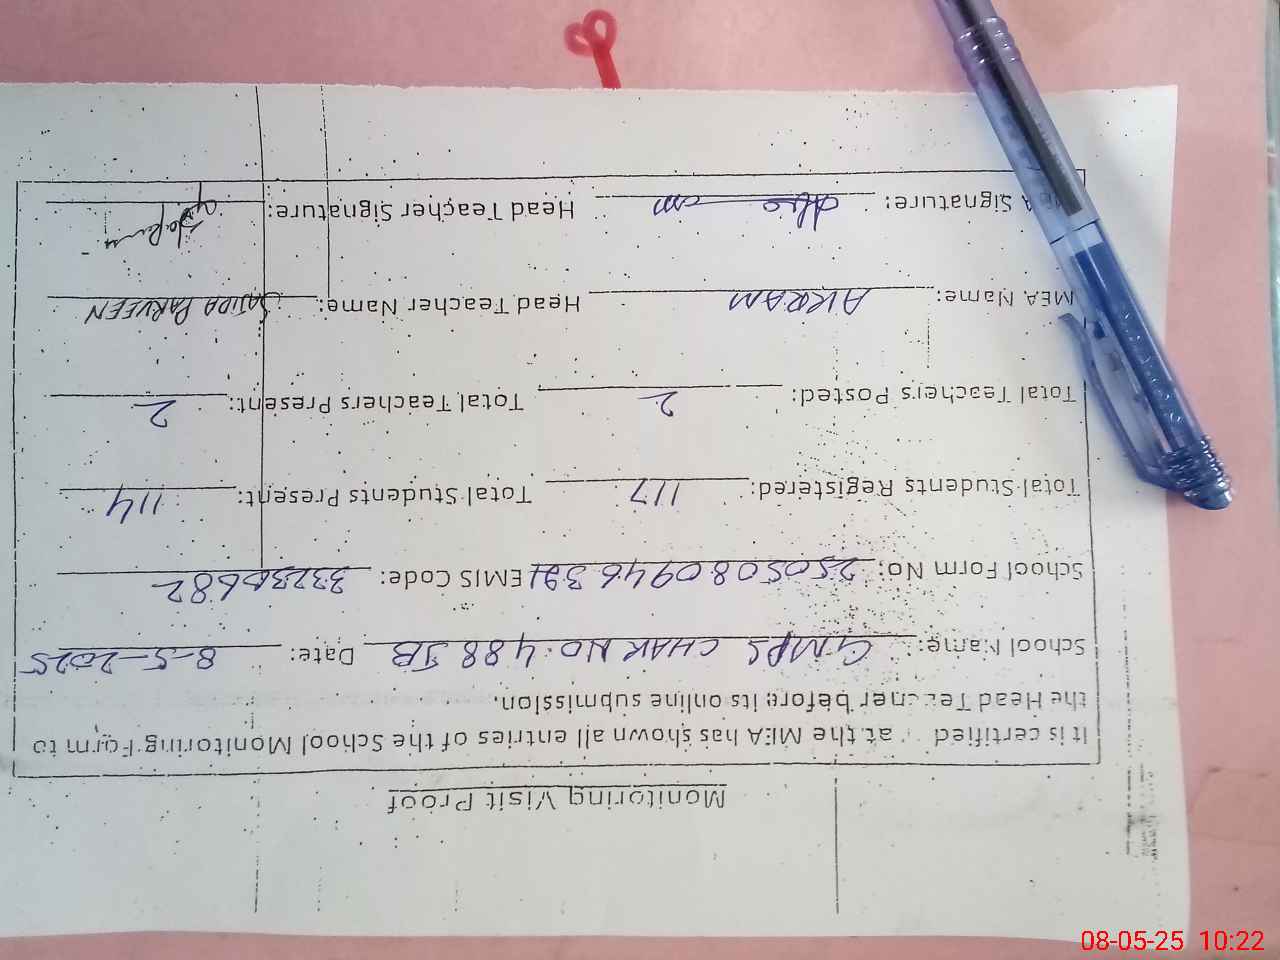 Monitoring Visit Proof
It is certified that the MEA has shown all entries of the School Monitoring Form to
the Head Teacher before its online submission.
School Name: GMPS CHAK NO. 488 JB Date: 8-5-2025
School Form No: 2505080946391 EMIS Code: 33230682
Total Students Registered: 117 Total Students Present: 114
Total Teachers Posted: 2 Total Teachers Present: 2
MEA Name: AKRAM Head Teacher Name: SAJIDA PARVEEN
MEA Signature: Head Teacher Signature:
08-05-25 10:22